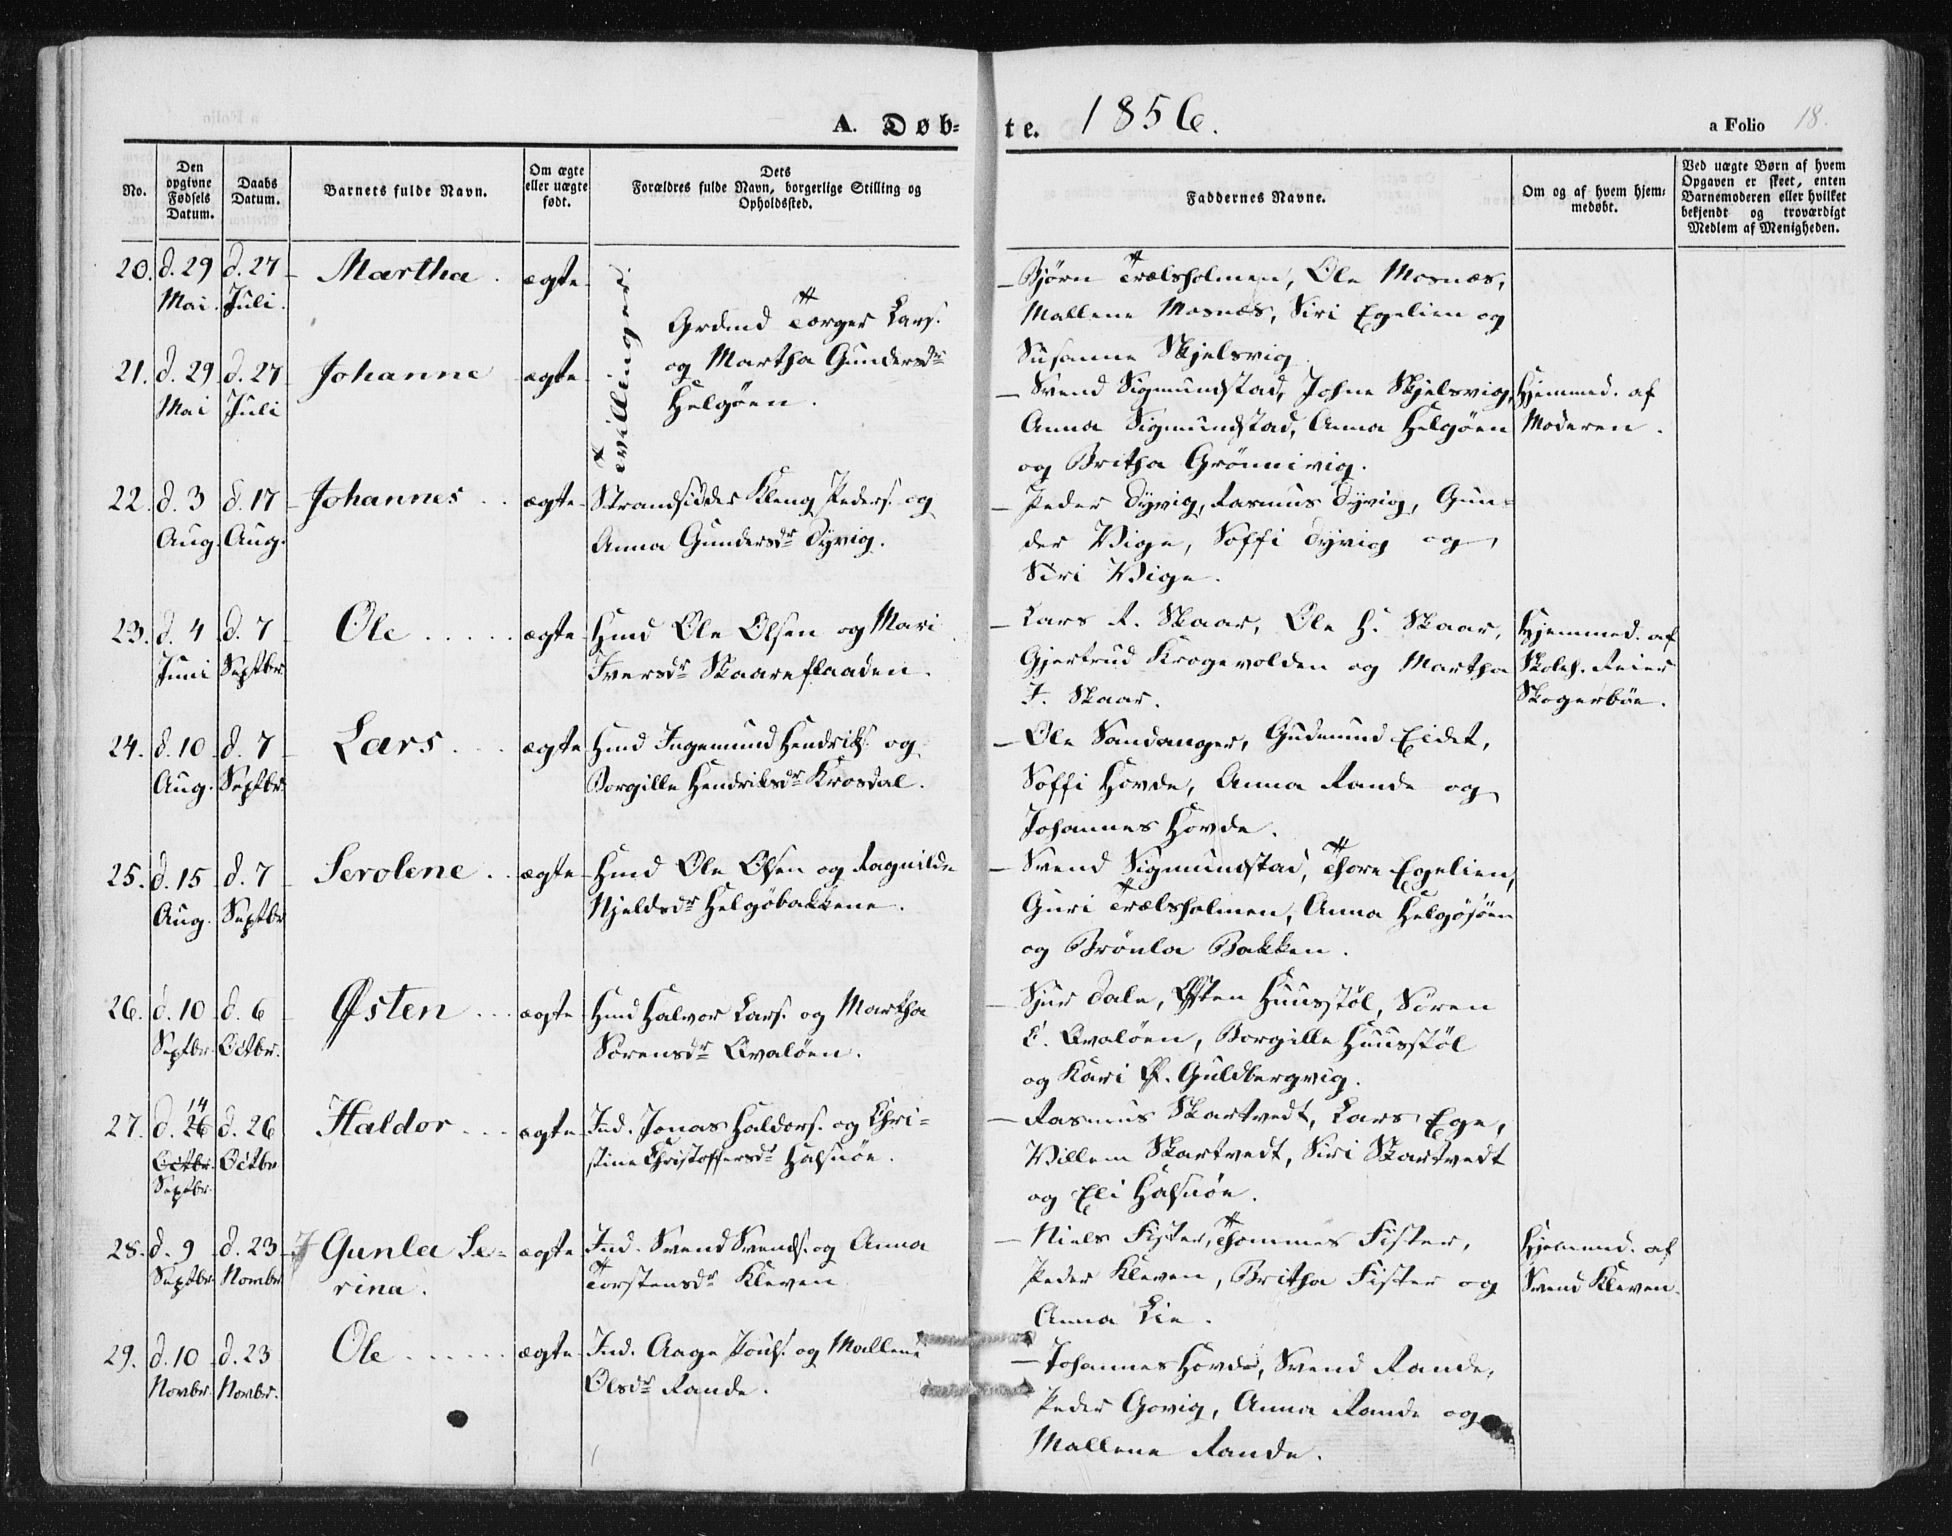 A. Døbte. 1856. a Folio 18.
No.
Den opgivne Fødsels Datum.
Daabs Datum.
Barnets fulde Navn.
Om ægte eller uægte født.
Dets Forældres fulde Navn, borgerlige Stilling og Opholdssted.
Faddernes Navne.
Om og af hvem hjemmedøbt.
Ved uægte Børn af hvem Opgaven er skeet, enten Barnemoderen eller hvilket bekjendt og troværdigt Medlem af Menigheden.
20. d. 29 Mai. d. 27 Juli. Martha. ægte
Tvillinger.
Grdmd Torger Lars.
og Martha Gundersdr
Helgøen.
Bjørn Trælsholmen, Ole Mosnæs,
Mallene Mosnæs, Siri Egelien og
Susanne Skjelsvig.
21. d. 29 Mai d. 27 Juli Johanne ægte
Svend Sigmundstad, Johne Skjelsvig,
Anna Sigmundstad, Anna Helgøen
og Britha Grønnivig.
Hjemmed. af
Moderen.
22. d. 3 Aug. d. 17 Aug. Johannes . . ægte
Strandsidder Kleng Peders. og
Anna Gundersdr Dyvig.
Peder Dyvig, Rasmus Dyvig, Gun-
der Vige, Soffi Dyvig og
Siri Vige.
23. d. 4 Juni d. 7 Septbr. Ole . . . . . ægte
Hmd Ole Olsen og Mari
Iversdr Skaareflaaden.
Lars R. Skaar, Ole H. Skaar,
Gjertrud Krogevolden og Martha
I. Skaar.
Hjemmed. af
Skoleh. Reier
Skogerbøe.
24. d. 10 Aug. d. 7 Septbr. Lars . . . ægte
Hmd Ingemund Hendriks. og
Borgille Hendriksdr Krosdal.
Ole Sandanger, Gudmund Eidet,
Soffi Hovde, Anna Rande og
Johannes Hovde.
25. d. 15 Aug. d. 7 Septbr Serolene . . ægte
Hmd Ole Olsen og Ragnilde
Njeldsdr Helgøbakkene.
Svend Sigmundstad, Thore Egelien,
Guri Trælsholmen, Anna Helgøsøen
og Brønla Bakken.
26. d. 10 Septbr. d. 6 Octbr. Østen . . . ægte
Hmd Halvor Lars. og Martha
Sørensdr Qvaløen.
Sjur Dale, Østen Huusstøl, Søren
E. Qvaløen, Borgille Huusstøl
og Kari Ø. Guldbergvig.
27. d. 14 26 Octbr. Septbr. d. 26 Octbr Haldor . . . ægte
Ind. Jonas Haldors. og Chri-
stine Christoffersdr Halsnøe.
Rasmus Skartvedt, Lars Ege,
Villem Skartvedt, Siri Skartvedt
og Eli Halsnøe.
28. d. 9 Septbr d. 23 Novbr Gunla Se-
rina. ægte
Ind. Svend Svends. og Anna
Torstensdr Kleven
Niels Fister, Thommes Fister,
Peder Kleven, Britha Fister og
Anna Lie.
Hjemmed. af
Svend Kleven.
29. d. 10 Novbr. d. 23 Novbr. Ole . . . . . . ægte
Ind. Aage Pouls. og Mallene
Olsdr Rande.
Johannes Hovde, Svend Rande,
Peder Govig, Anna Rande og
Mallene Rande.